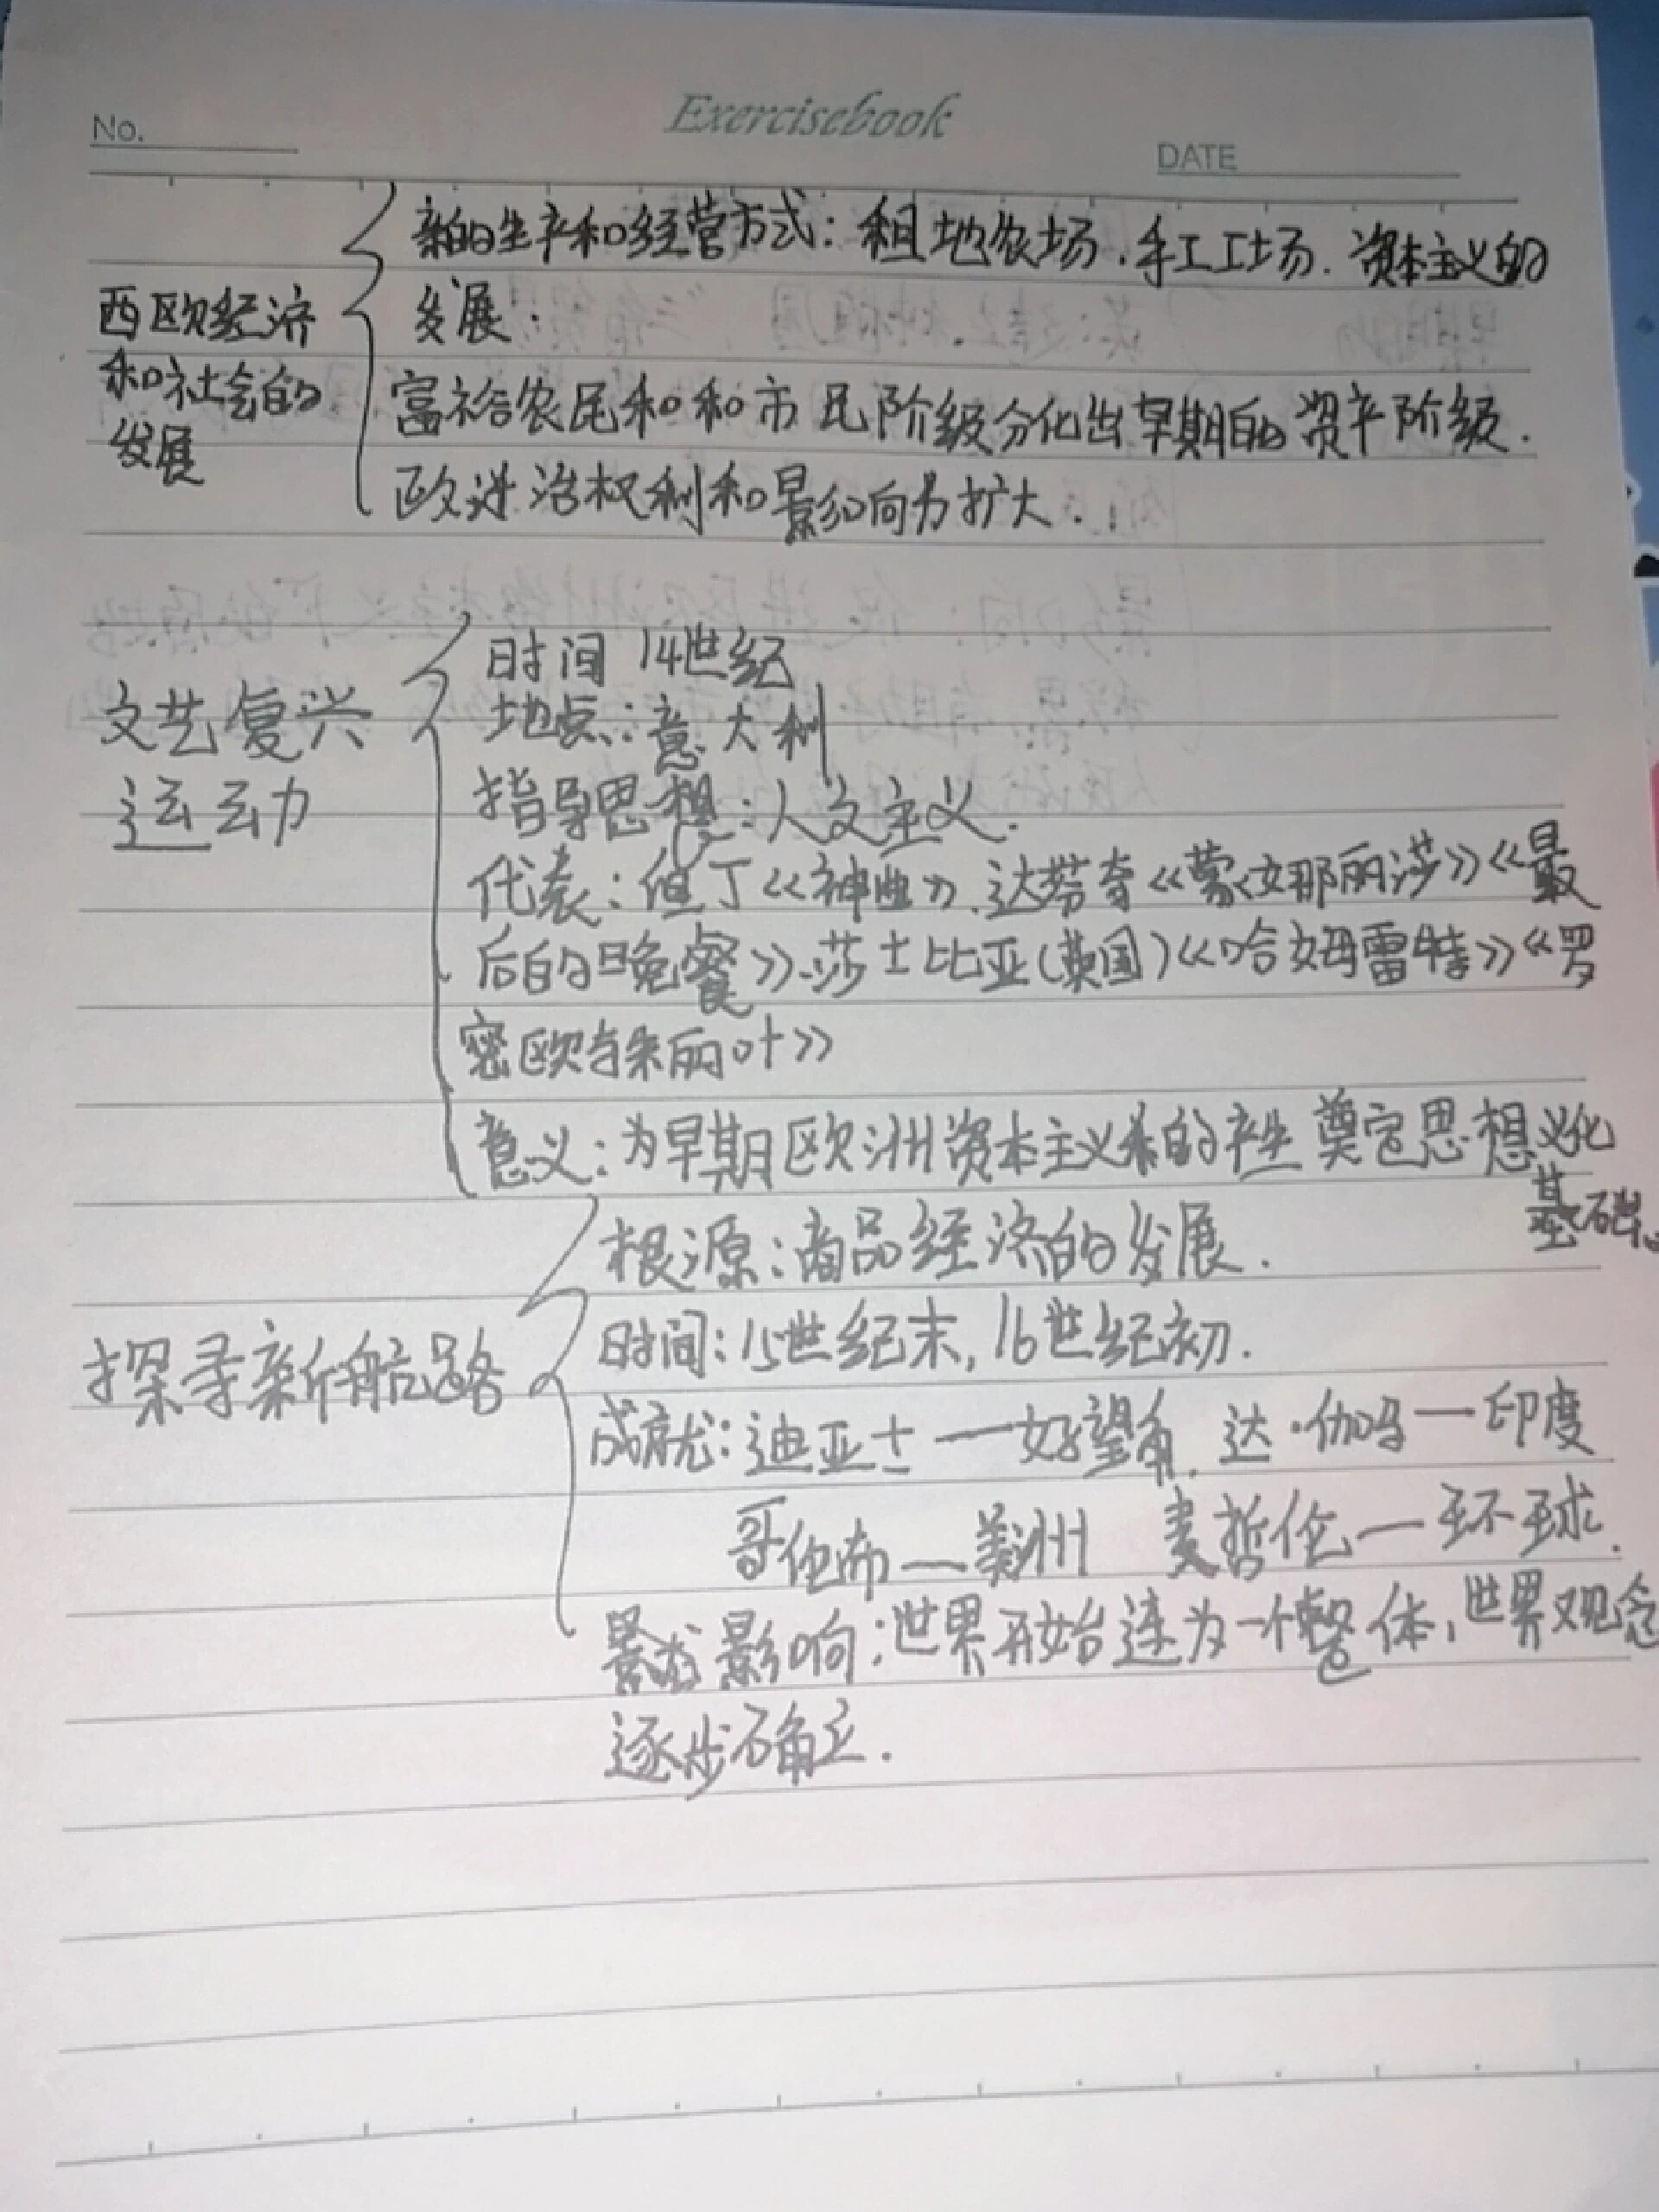 No.
Exercisebook
DATE
新的生产和经营方式：租地农场．手工工场．资本主义的
发展．
西欧经济
和社会的
发展
富裕农民和和市民阶级分化出早期的资产阶级．
政治权利和影响力扩大．
文艺复兴
运动
时间 14世纪
地点：意大利
指导思想：人文主义．
代表：但丁《神曲》．达芬奇《蒙娜丽莎》《最
后的晚餐》．莎士比亚(英国)《哈姆雷特》《罗
密欧与朱丽叶》
意义：为早期欧洲资本主义的产生 奠定思想文化
基础。
探寻新航路
根源：商品经济的发展．
时间：15世纪末，16世纪初．
成就：迪亚士—好望角．达·伽马—印度
哥伦布—美洲 麦哲伦—环球．
影响：世界开始连为一个整体，世界观念
逐步确立．